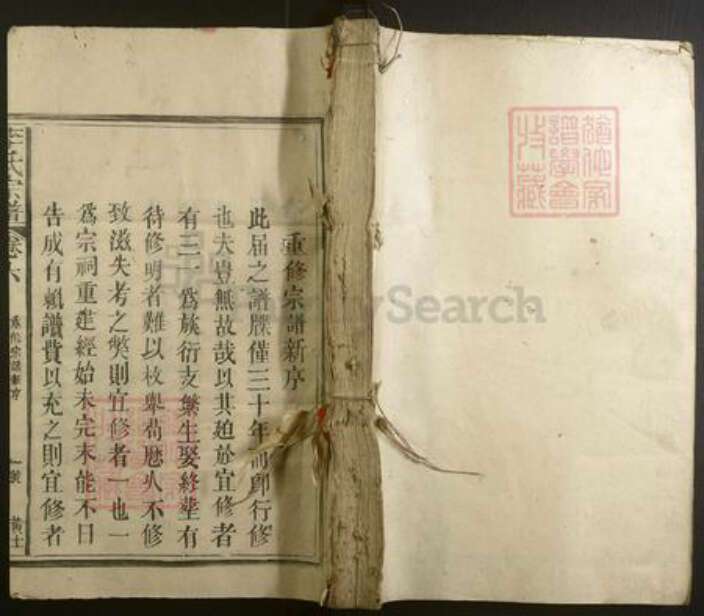 重修宗譜新序
此届之譜牒僅三十年而卽行修
也夫豈無故哉以其廹於宜修者
有三一爲族衍支繁生娶終塟有
待修明者難以枚舉苟厯久不修
致滋失考之獘則宜修者一也一
爲宗祠重建經始未完末能不日
告成有賴譜費以充之則宜修者
李氏宗譜
卷六
重修宗譜新序
一號
MySearch